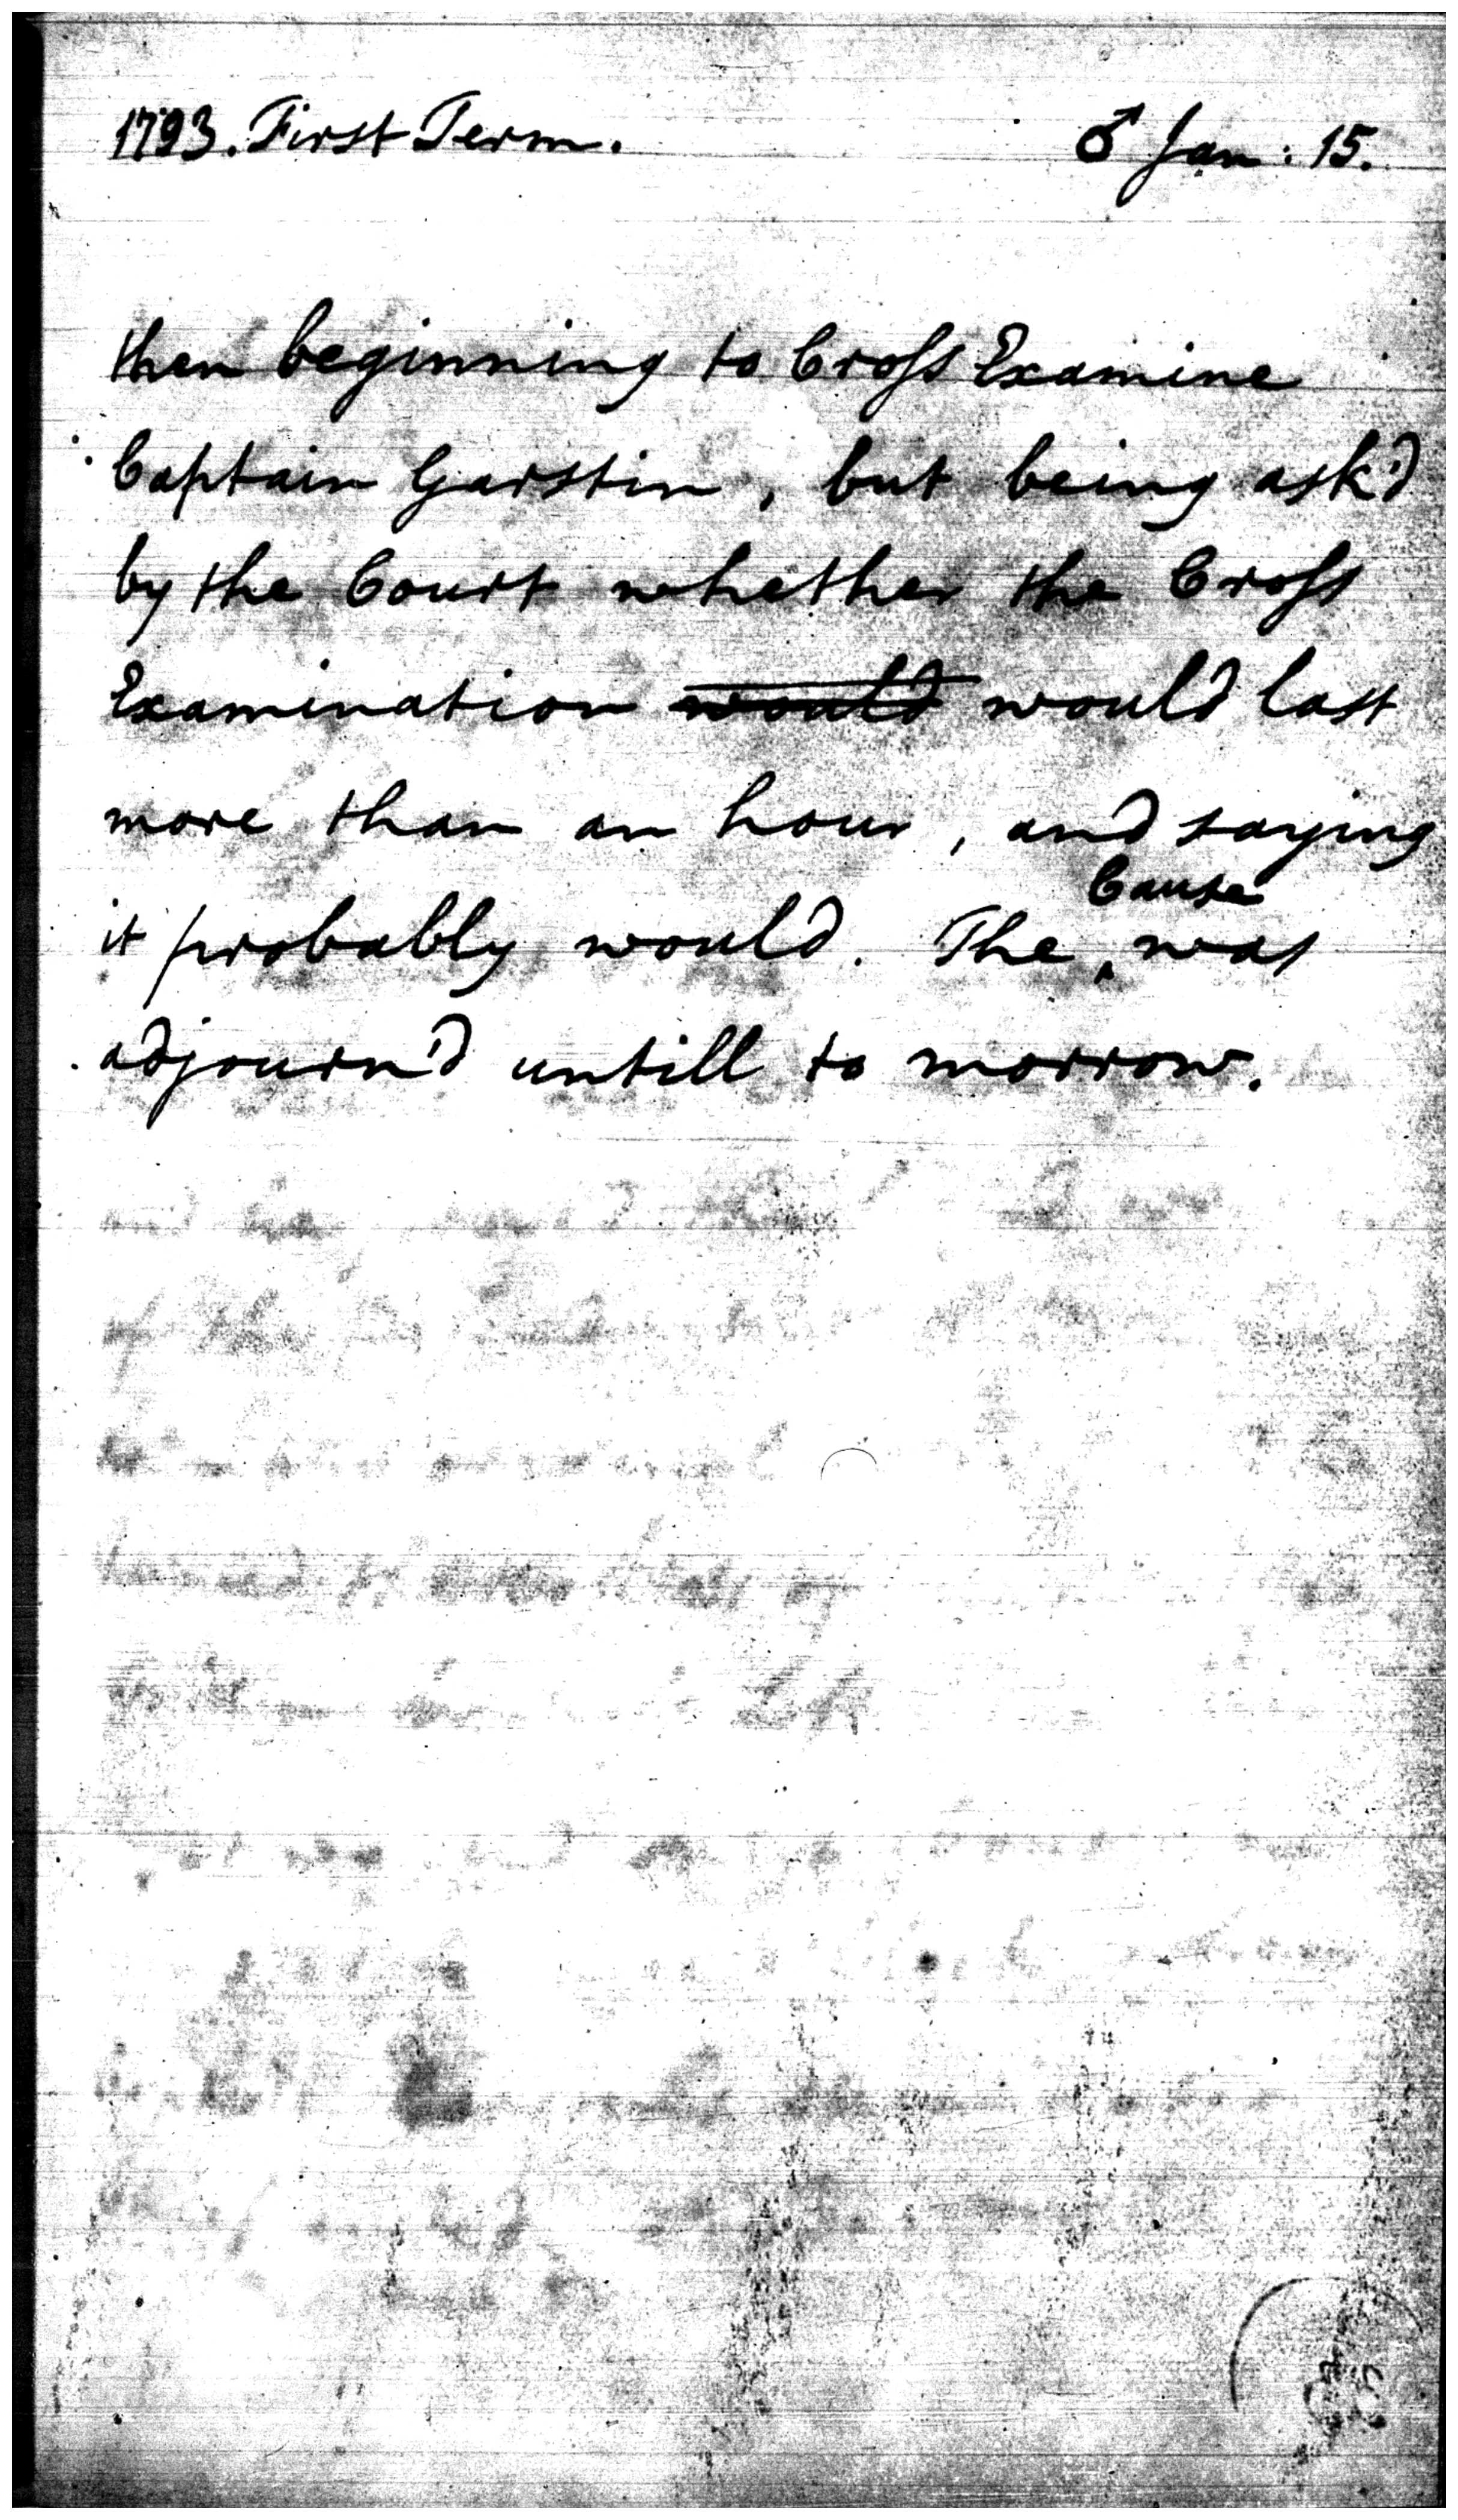 1793. First Term. ♂ Jan: 15.
then beginning to Cross Examine
Captain Garstin, but being ask'd
by the Court whether the Cross
Examination would would last
more than an hour, and saying
Cause
it probably would. The ‸ was
adjourn'd untill to morrow.